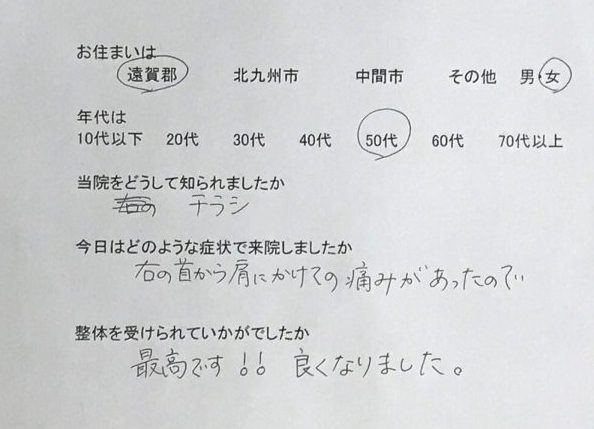 お住まいは
遠賀郡 北九州市 中間市 その他 男・女
年代は
10代以下 20代 30代 40代 50代 60代 70代以上
当院をどうして知られましたか
右の チラシ
今日はどのような症状で来院しましたか
右の首から肩にかけての痛みがあったので
整体を受けられていかがでしたか
最高です!! 良くなりました。